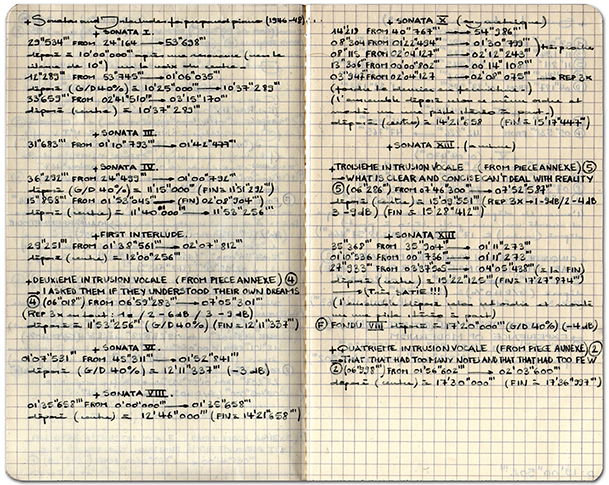 + Sonatas and Interludes for prepared piano (1946-48)
+ SONATA I.
29"534''' FROM 24"164 → 53"698'''
déposé = 10'00"000'''
12"289''' FROM 53"745''' → 01'06"035'''
déposé (G/D 40%) = 10'25"000''' → 10'37"289'''
33"659''' FROM 02'41"510''' → 03'15"170'''
déposé (centre) = 10'37"289'''
+ SONATA III.
31"683''' FROM 01'10"793''' → 01'42"477'''
+ SONATA IV.
36"292''' FROM 24"499''' → 01'00"792'''
déposé (G/D 40%) = 11'15"000''' (FIN = 11'51"292''')
15"855''' FROM 01'53"045''' → (FIN) 02'08"904'''
déposé (centre) = 11'40"000''' → 11'53"256'''
+ FIRST INTERLUDE.
29"251''' FROM 01'38"561''' → 02'07"812'''
déposé (centre) = 12'00"256'''
+ DEUXIEME INTRUSION VOCALE (FROM PIECE ANNEXE) ④
→ I ASKED THEM IF THEY UNDERSTOOD THEIR OWN DREAMS
④ (06"018''') FROM 06'59"283''' → 07'05"301'''
(REP 3X en tout: 1 2 / 2 - 6dB / 3 - 9dB)
déposé = 11'53"256''' (G/D 40%) (FIN = 12'11"337''')
+ SONATA VI.
01'07"531''' FROM 45"311''' → 01'52"841'''
déposé (G/D 40%) = 12'11"337''' (-3dB)
+ SONATA VIII.
01'35"658''' FROM 0'00"000''' → 01'35"658'''
déposé (centre) = 12'46"000''' (FIN = 14'21"658''')
+ SONATA X (asymétrique)
14"219 FROM 40"767''' → 54"986'''
08"304 FROM 01'22"494''' → 01'30"799'''
08"115 FROM 02'04"127 → 02'12"243'''
13"306 FROM 00'00"802''' → 00'14"108'''
03"947 FROM 02'04"127 → 02'08"075''' → REP 3X
déposé (centre) = 14'21"658 (FIN = 15'17"447''')
+ SONATA XII.
+ TROISIEME INTRUSION VOCALE (FROM PIECE ANNEXE) ⑤
→ WHAT IS CLEAR AND CONCISE CAN'T DEAL WITH REALITY
⑤ (06"286''') FROM 07'46"300''' → 07'52"587'''
déposé = 15'09"551''' (REP 3X → 1-9dB/2-4dB
3-9dB) (FIN = 15'28"412''')
+ SONATA XIII.
35"368''' FROM 35"904''' → 01'11"273'''
01'10"536 FROM 00"736 → 01'11"273
27"933''' FROM 03'37"505 → 04'05"438''' (= la FIN)
déposé (centre) = 15'22"125''' (FIN = 17'27"874''')
Ⓕ FONDU VIII déposé = 17'20"000''' (G/D 40%) (-4dB)
+ QUATRIEME INTRUSION VOCALE (FROM PIECE ANNEXE) ②
→ THAT THAT HAD TOO MANY NOTES AND THAT THAT HAD TOO FEW
② (06"998''') FROM 01'56"602''' → 02'03"600'''
déposé (centre) = 17'30"000''' (FIN = 17'36"997''')